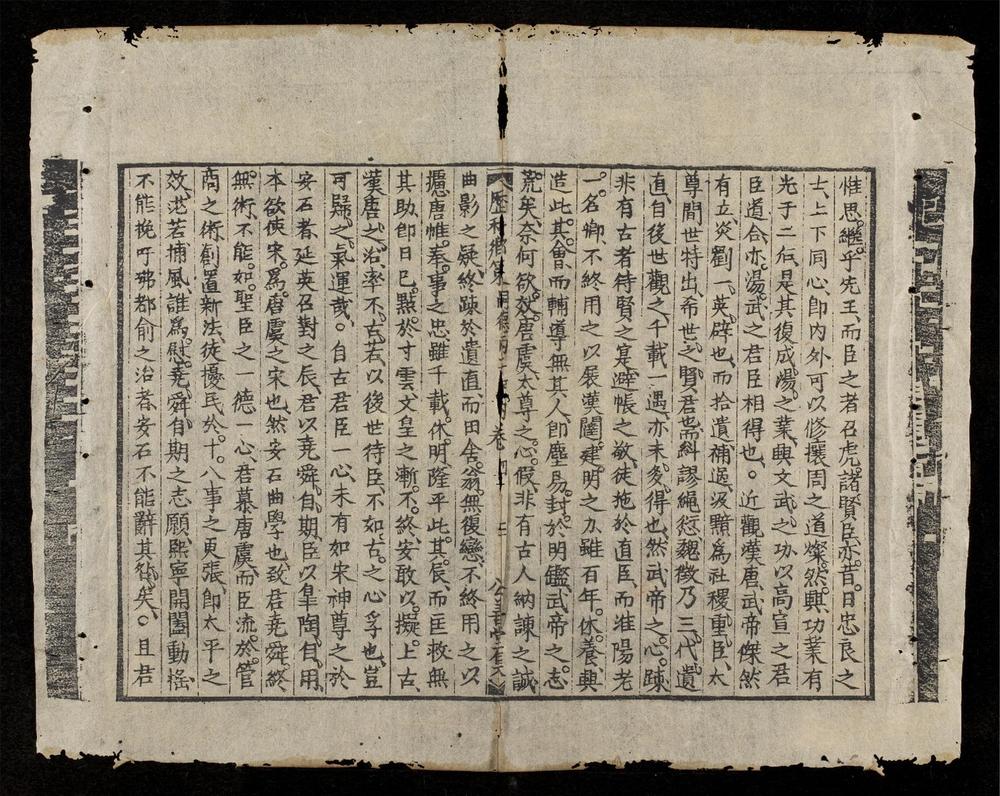 惟思繼乎先王而臣之者召虎諸賢臣亦昔日忠良之
士上下同心卽內外可以修攘周之道燦然興功業有
光于二后是其復成湯之業興文武之功以高宣之君
臣道合亦湯武之君臣相得也○近觀漢唐武帝傑然
有立炎劉一英辟也而拾遺補過汲黯爲社稷重臣太
尊間世特出希世之賢君也而糾謬繩愆魏徵乃三代遺
直自後世觀之千載一遇亦未多得也然武帝之心踈
非有古者待賢之寔避帳之敬徒施於直臣而淮陽老
一名卿不終用之以展漢闥建明之力雖百年休養興
造此其會而輔導無其人卽塵易封於明鑑武帝之志
荒矣奈何欲效唐虞太尊之心假非有古人納諫之誠
歷科鄉策 卷四 公善堂
曲影之疑終踈於遺直而田舍翁無復戀不終用之以
攄唐帷奉事之忠雖千載休明隆平此其辰而匡救無
其助卽日已點於寸雲文皇之漸不終安敢以擬上古
漢唐之治率不古若以後世待臣不如古之心孚也豈
可歸之氣運哉○自古君臣一心未有如宋神尊之於
安石者延英召對之辰君以堯舜自期臣以皐陶自用
本欲使宋爲唐虞之宋也然安石曲學也致君堯舜終
無術不能如聖臣之一德一心君慕唐虞而臣流於管
商之術創置新法徒擾民於十八事之更張卽太平之
效茫若捕風誰爲慰堯舜自期之志願熙寧開闔動搖
不能挽吁咈都俞之治者安石不能辭其咎矣○且君